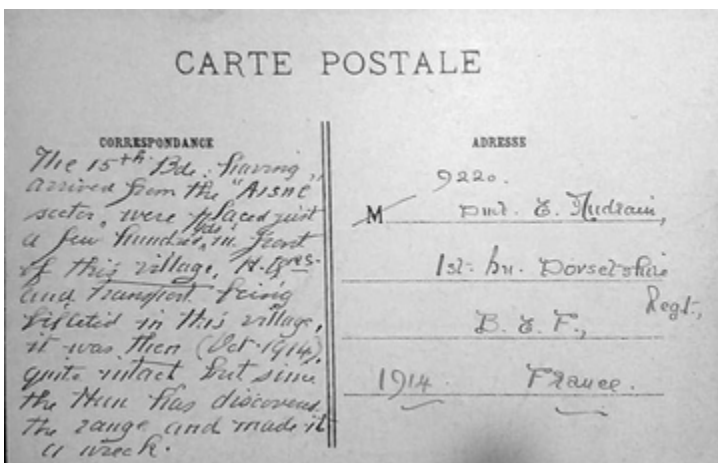 CARTE POSTALE
CORRESPONDANCE
The 15th Bde. having
arrived from the "Aisne"
sector, were placed just
a few hundred yds in front
of this village, H. Qrs.
and Transport being
billeted in this village,
it was then (Oct. 1914),
quite intact but since
the Hun has discovered
the range and made it
a wreck.
ADRESSE
9220.
M Dmr. E.
1st. bn. Dorsetshire
Regt.,
B. E. F.,
1914. France.